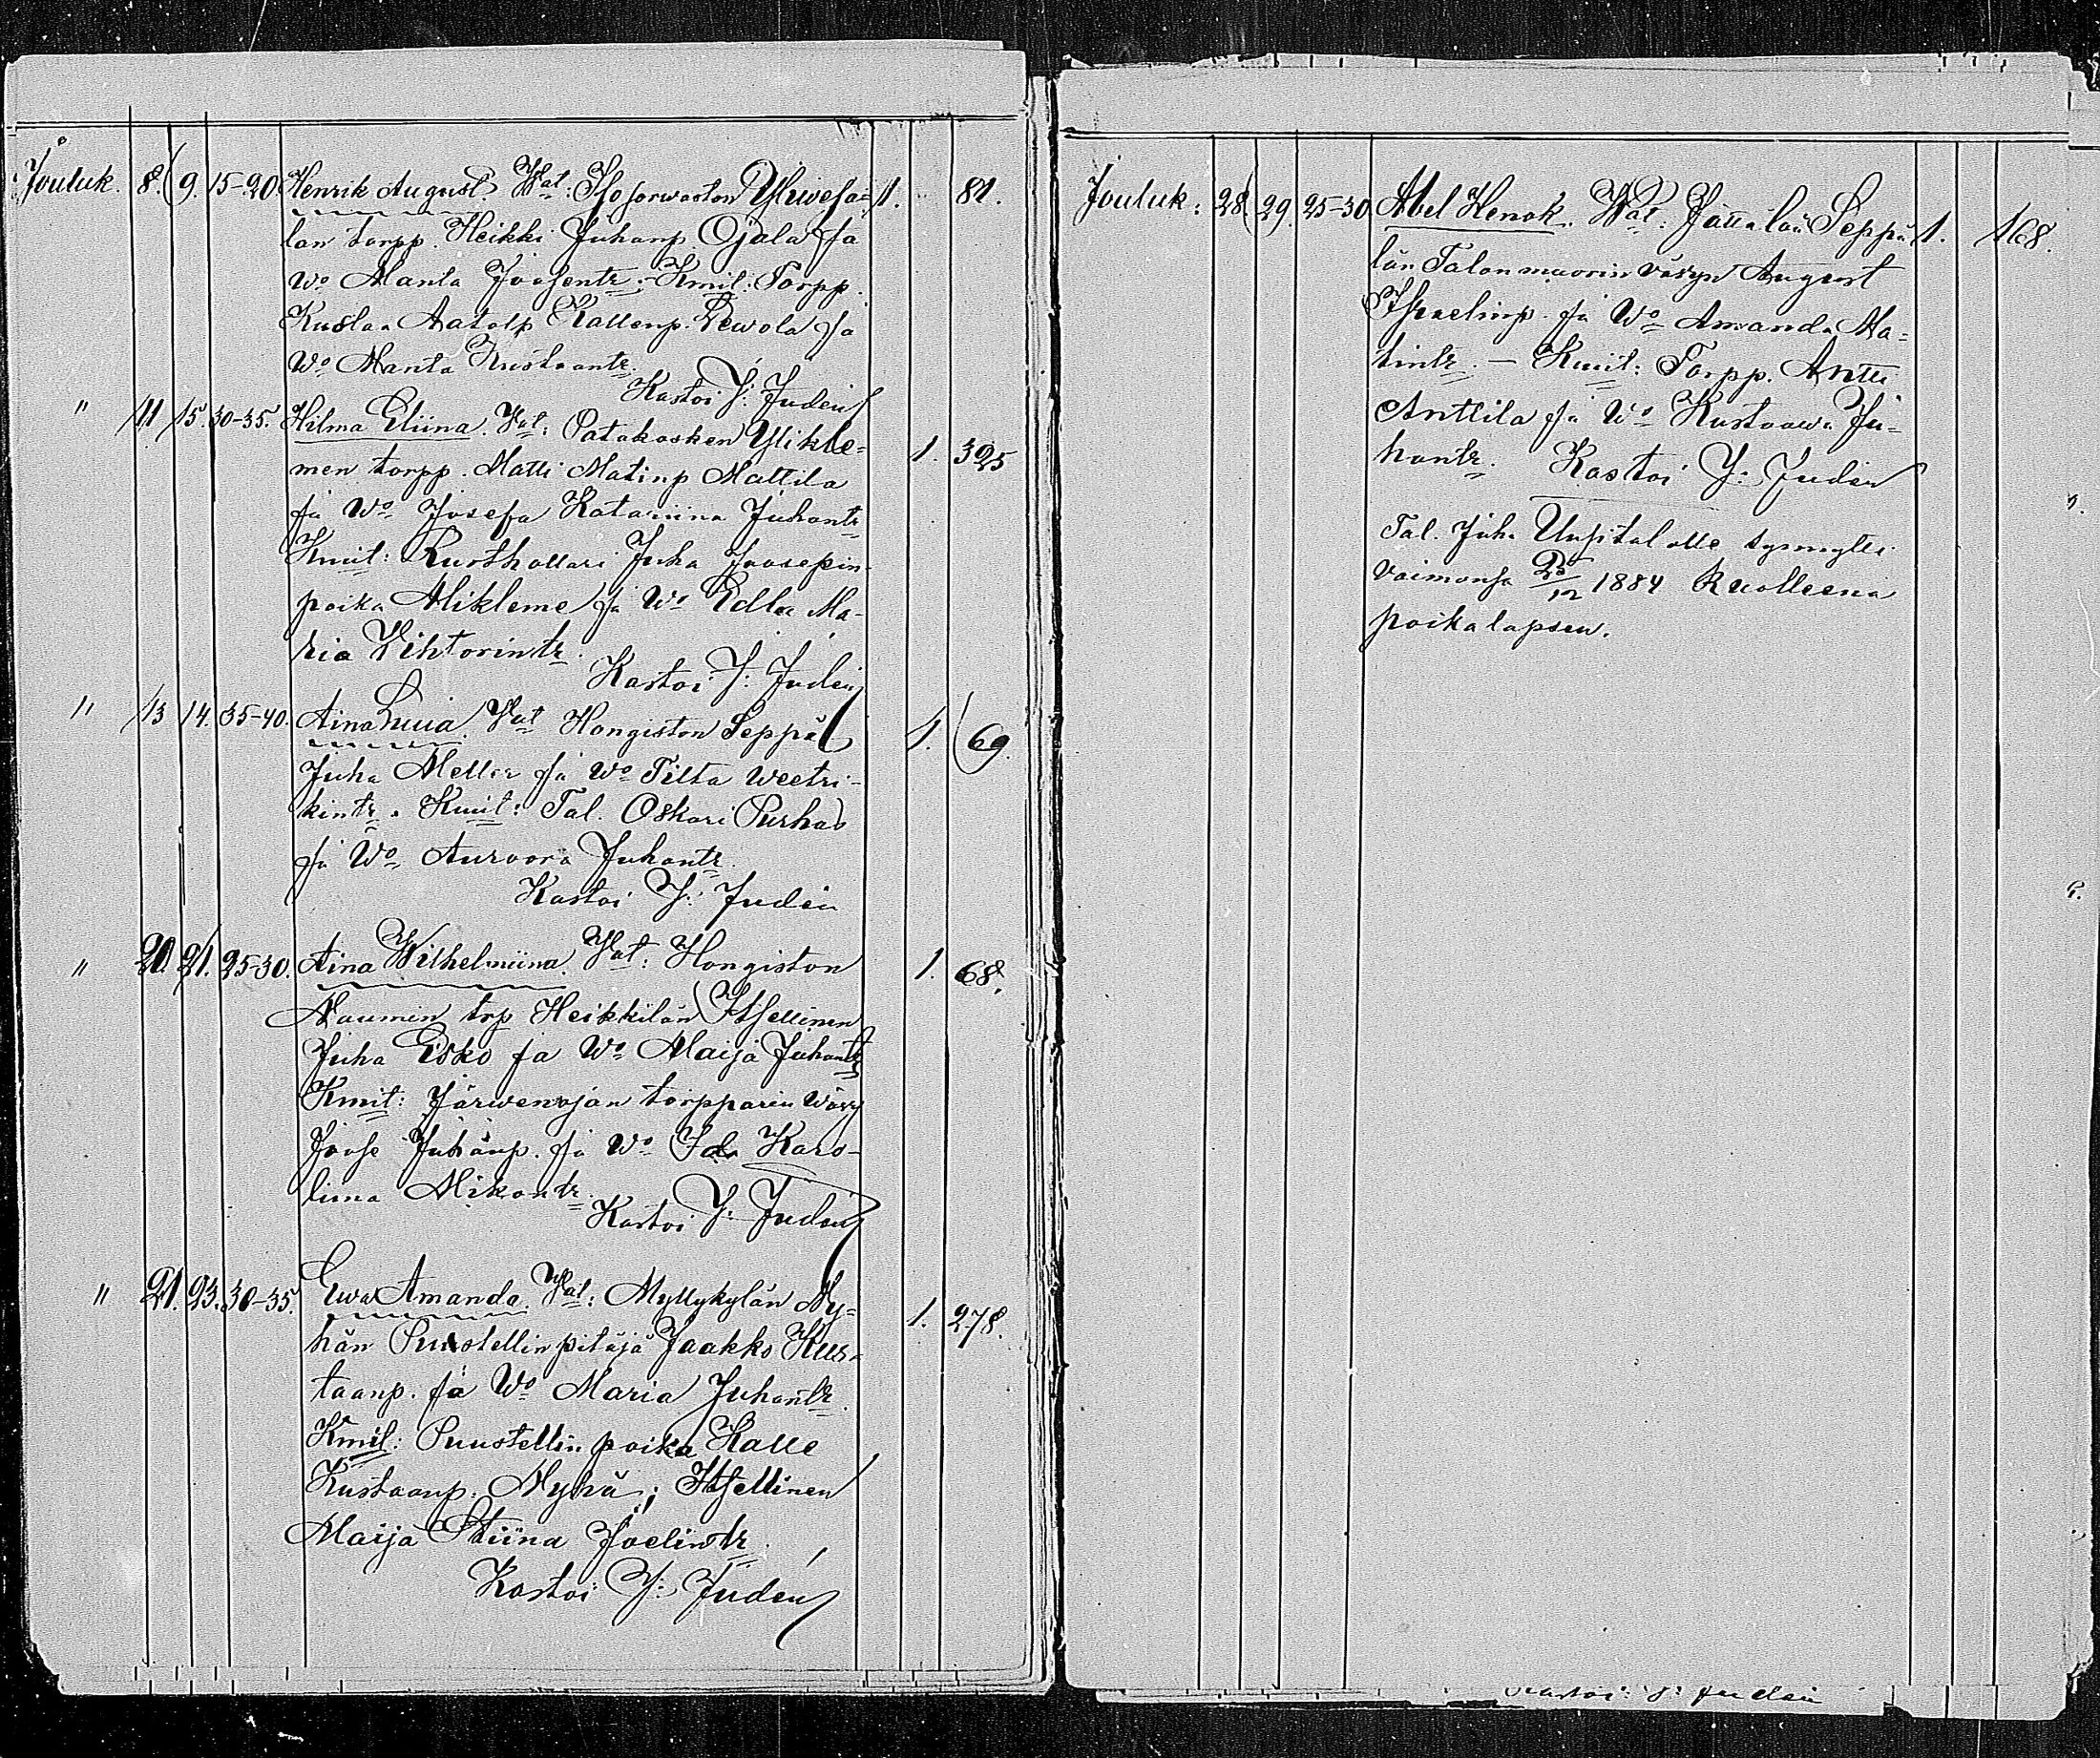 Jouluk. 8. 9. 15-20. Henrik August. Wat: Isosorwaston Yliwesa= 1. 81.
lan torpp. Heikki Juhanp. Ojala ja
Wo Manta Joosentr. - Kmit: Torpp.
Kustaa Aatolf Kallenp. Rewola ja
Wo Manta Kustaantr.
Kastoi J: Juden
" 11 15. 30-35. Hilma Eliina. Wat: Patakosken Ylikle= 1. 325
men torpp. Matti Matinp Mattila
ja Wo Josefa Katariina Juhantr
Kmit: Rusthollari Juha Joosepin-
poika Alikleme ja Wo Edla Ma-
ria Vihtorintr.
Kastoi J: Juden
" 13 14. 35-40. Aina Wat Hongiston Seppä 1. 69.
Juha Meller ja Wo Tilta Weetri-
kintr. Kmit: Tal. Oskari Purha
ja Wo Auroora Juhantr.
Kastoi J: Juden
" 20. 21. 25-30. Aina Wilhelmiina. Wat: Hongiston 1. 68.
Naumin trp Heikkilän Itsellinen
Juha Eisko ja Wo Maija Juhantr
Kmit: Järwenojan torpparin Wäwy
Joose Juhanp. ja Wo Ida Karo-
liina Mikontr.
Kastoi J: Juden
" 21. 23. 30-35. Ewa Amanda. Wat: Myllykylän My= 1. 278.
hän Puustellin pitäjä Jaakko Kus-
taanp. ja Wo Maria Juhantr.
Kmit: Puustellin poika Kalle
Kustaanp. Myhä; Itsellinen
Maija Stiina Joelintr.
Kastoi J: Juden
Jouluk: 28. 29. 25-30. Abel Henok. Wat: Jättälän Seppä 1. 168.
län Talonmuorin väwyn August
Israelinp. ja Wo Amanda Ma=
tintr. - Kmit: Torpp. Antti
Anttila ja Wo Kustaawa Ju=
hantr. Kastoi J: Juden
Tal. Juha Uusitalolle synnytti
vaimonsa 25/12 1884 Kuolleena
poikalapsen.
Kastoi: J: Juden